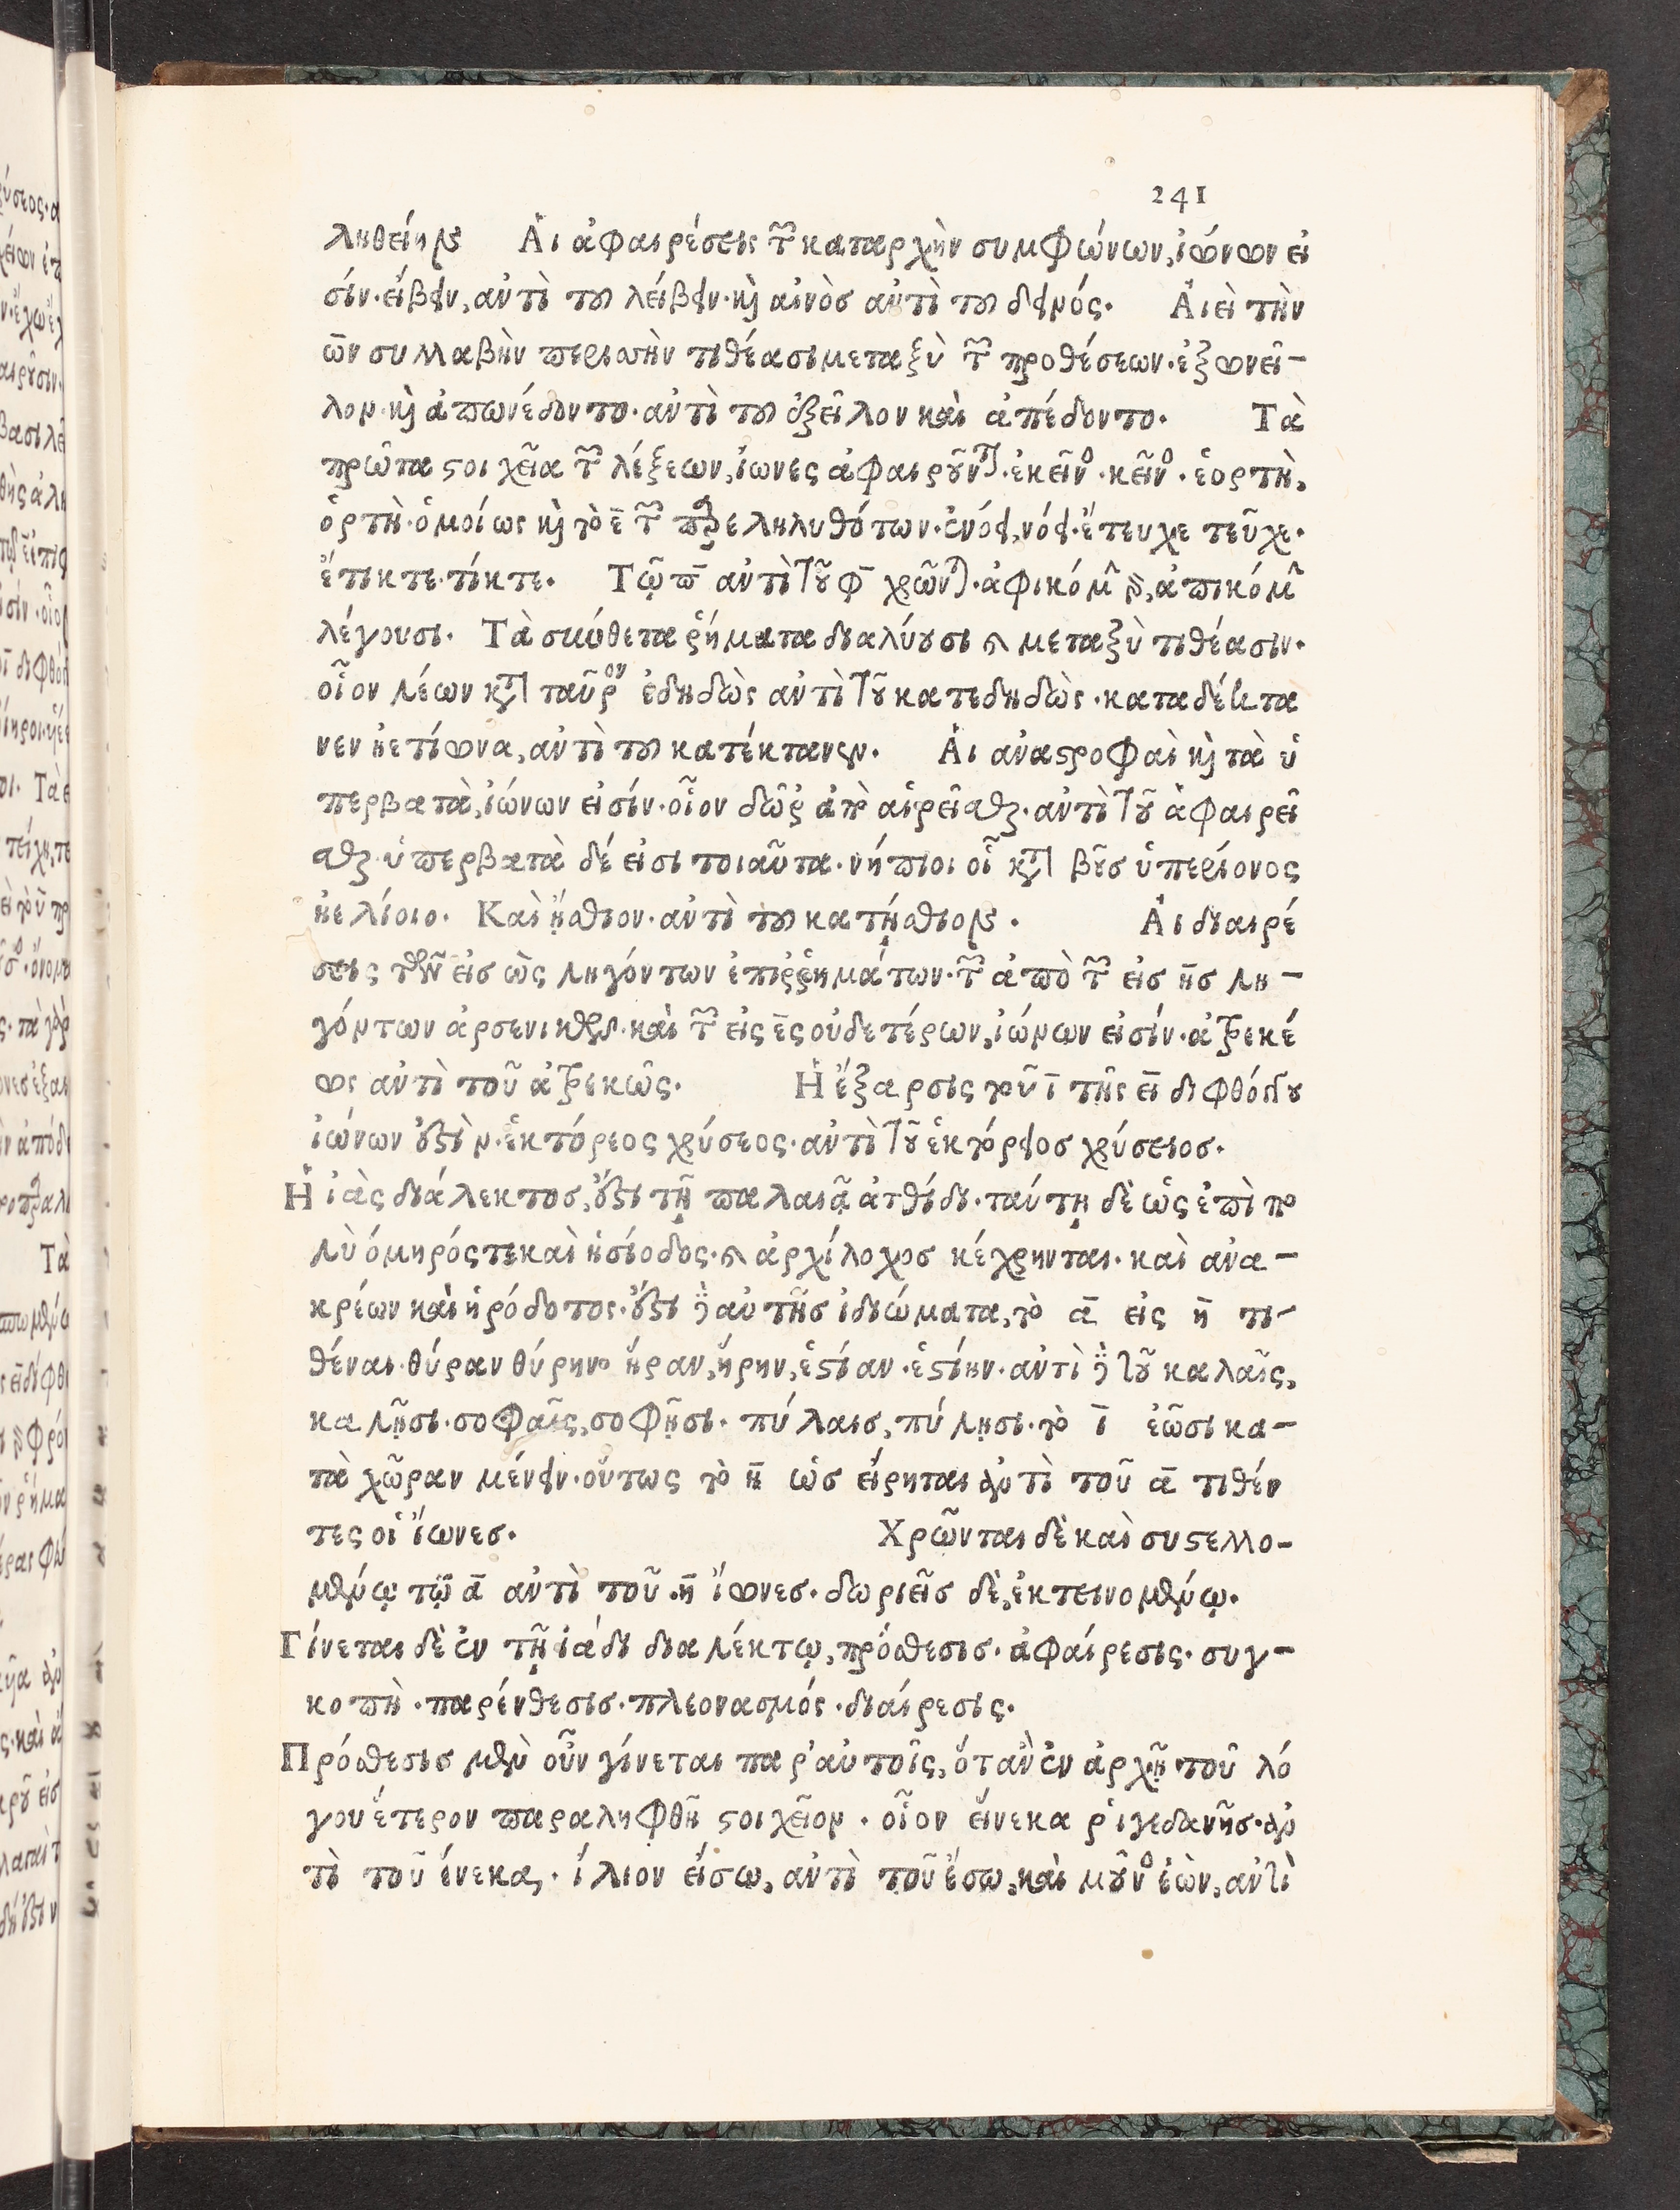 241
ληθείην Ἁι ἀφαιρέσεις τῶν καταρχὴν συμφώνων, ἰώνων εἰ
σίν· εἴβειν, αὐτὶ του λείβειν· καὶ αἰνὸσ αὐτὶ του δεινός. Ἁιεὶ τὴν
ῶν συλλαβὴν περιττὴν τιθέασι μεταξὺ τῶν προθέσεων· ἐξωνεῖ-
λον· καὶ ἀπωνέδοντο· αὐτὶ του ἐξεῖλον καὶ ἀπέδοντο. Τὰ
πρῶτα στοιχεῖα τῶν λέξεων, ἴωνες ἀφαιροῦνται· ἐκεῖνος· κεῖνος· ἑορτὴ,
ὁρτὴ· ὁμοίως καὶ τὸ ε̄ τῶν παρεληλυθότων· ἐνόει, νόει· ἔτευχε τεῦχε·
ἔτικτε· τίκτε. Τῷ π̄ αὐτὶ τοῦ φ̄ χρῶνται· ἀφικόμην γὰρ, ἀπικόμην
λέγουσι. Τὰ σύνθετα ῥήματα διαλύουσι καὶ μεταξὺ τιθέασιν·
οἷον λέων κατὰ ταῦρον ἐδηδὼς αὐτὶ τοῦ κατεδηδὼς· καταδέ ἑκτα
νεν ἠετίωνα, αὐτὶ του κατέκτανεν. Ἁι αναστροφαὶ καὶ τὰ ὑ
περβατὰ, ἰώνων εἰσίν· οἷον δῶρα ἀπὸ αἱρεῖσθαι· αὐτὶ τοῦ ἀφαιρεῖ
σθαι· ὑπερβατὰ δέ εἰσι τοιαῦτα· νήπιοι οἳ κατὰ βοῦσ ὑπερίονος
ἠελίοιο. Καὶ ἤσθιον· αὐτὶ του κατήσθιον. Ἁι διαιρέ
σεις τῶν εἰσ ὡς ληγόντων ἐπιῤῥημάτων· τῶν ἀπὸ τῶν εἰσ ησ λη-
γόντων ἀρσενικῶν· καὶ τῶν εἰς ες οὐδετέρων, ἰώνων εἰσίν· ἀτρεκέ
ως αὐτὶ τοῦ ἀτρεκῶς. Ἡ ἔξαρσις τοῦ ῑ τῆς ει διφθόγγου
ἰώνων ἐστὶν· ἑκτόρεος χρύσεος· αὐτὶ τοῦ ἑκτόρειοσ χρύσειοσ.
Ἡ ἰὰς διάλεκτοσ, ἐστι τῇ παλαιᾷ ἀτθίδι· ταύτῃ δὲ ὡς ἐπὶ πο
λὺ ὁμηρός τε καὶ ἡσίοδος· καὶ ἀρχίλοχοσ κέχρηνται· καὶ ανα-
κρέων καὶ ἡρόδοτος· ἔστι δὲ αὐτῆσ ἰδιώματα, τὸ ᾱ εἰς η τι-
θέναι· θύραν θύρην· ἥραν, ἥρην, ἑστίαν· ἑστίην· αὐτὶ δὲ τοῦ καλαῖς,
καλῇσι· σοφαῖς, σοφῇσι· πύλαισ, πύλῃσι· τὸ ῑ ἐῶσι κα-
τὰ χῶραν μένειν· οὕτως τὸ η ὡσ εἴρηται αντὶ τοῦ ᾱ τιθέν
τες οἱ ἴωνεσ. Χρῶνται δὲ καὶ συστελλο-
μένῳ τῷ ᾱ αὐτὶ τοῦ η ἴωνεσ· δωριεῖσ δὲ, ἐκτεινομένῳ.
Γίνεται δὲ ἐν τῇ ἰάδι διαλέκτῳ, πρόσθεσισ· ἀφαίρεσις· συγ-
κοπὴ· παρένθεσισ· πλεονασμός· διαίρεσις.
Πρόσθεσισ μὲν οὖν γίνεται παρ' αὐτοῖς, ὅταν ἐν ἀρχῇ τοῦ λό
γου ἕτερον παραληφθῇ στοιχεῖον· οἷον εἵνεκα ῥιγεδανῆσ· αν
τὶ τοῦ ἕνεκα, · ἴλιον εἴσω, αὐτὶ τοῦ ἔσω, καὶ μοῦνος ἐὼν, αὐτὶ